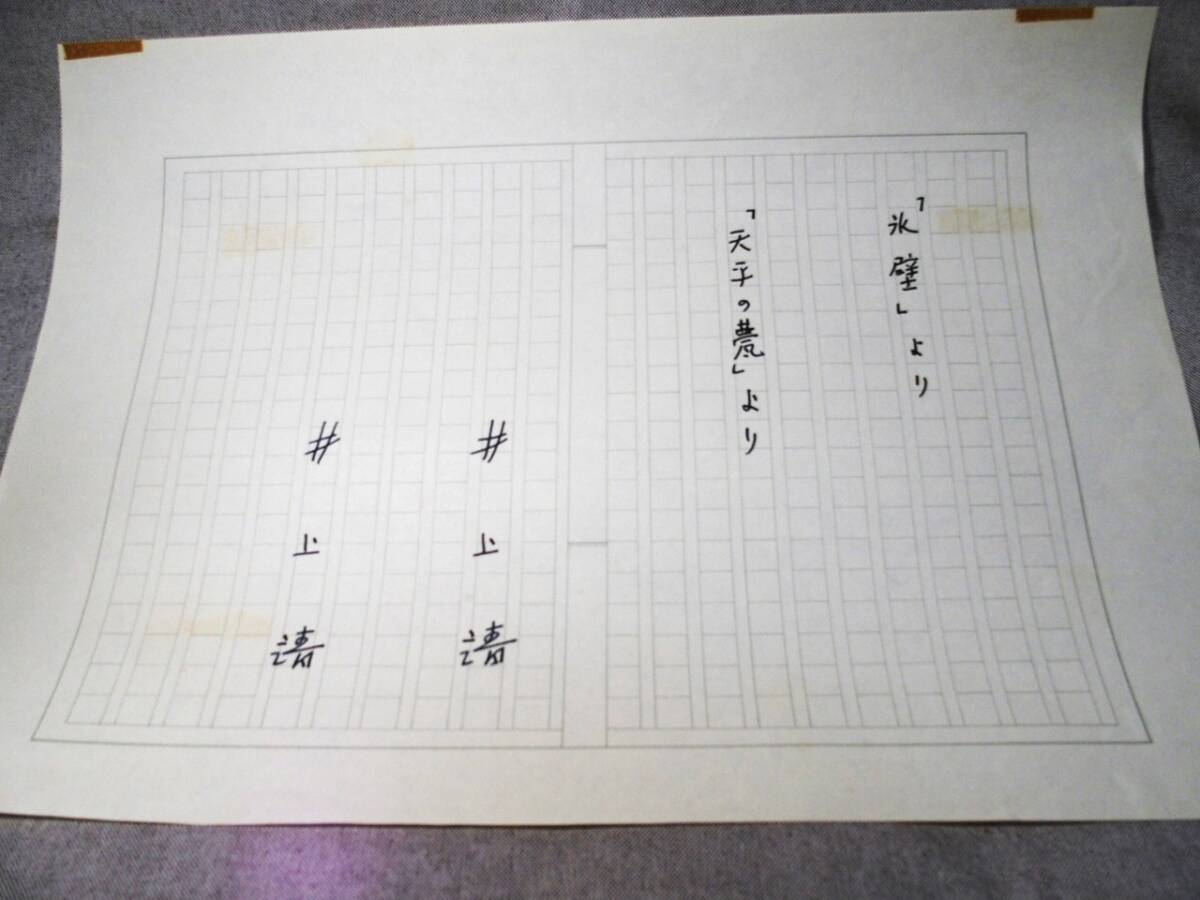 「氷壁」より
「天平の甍」より
井上靖
井上靖